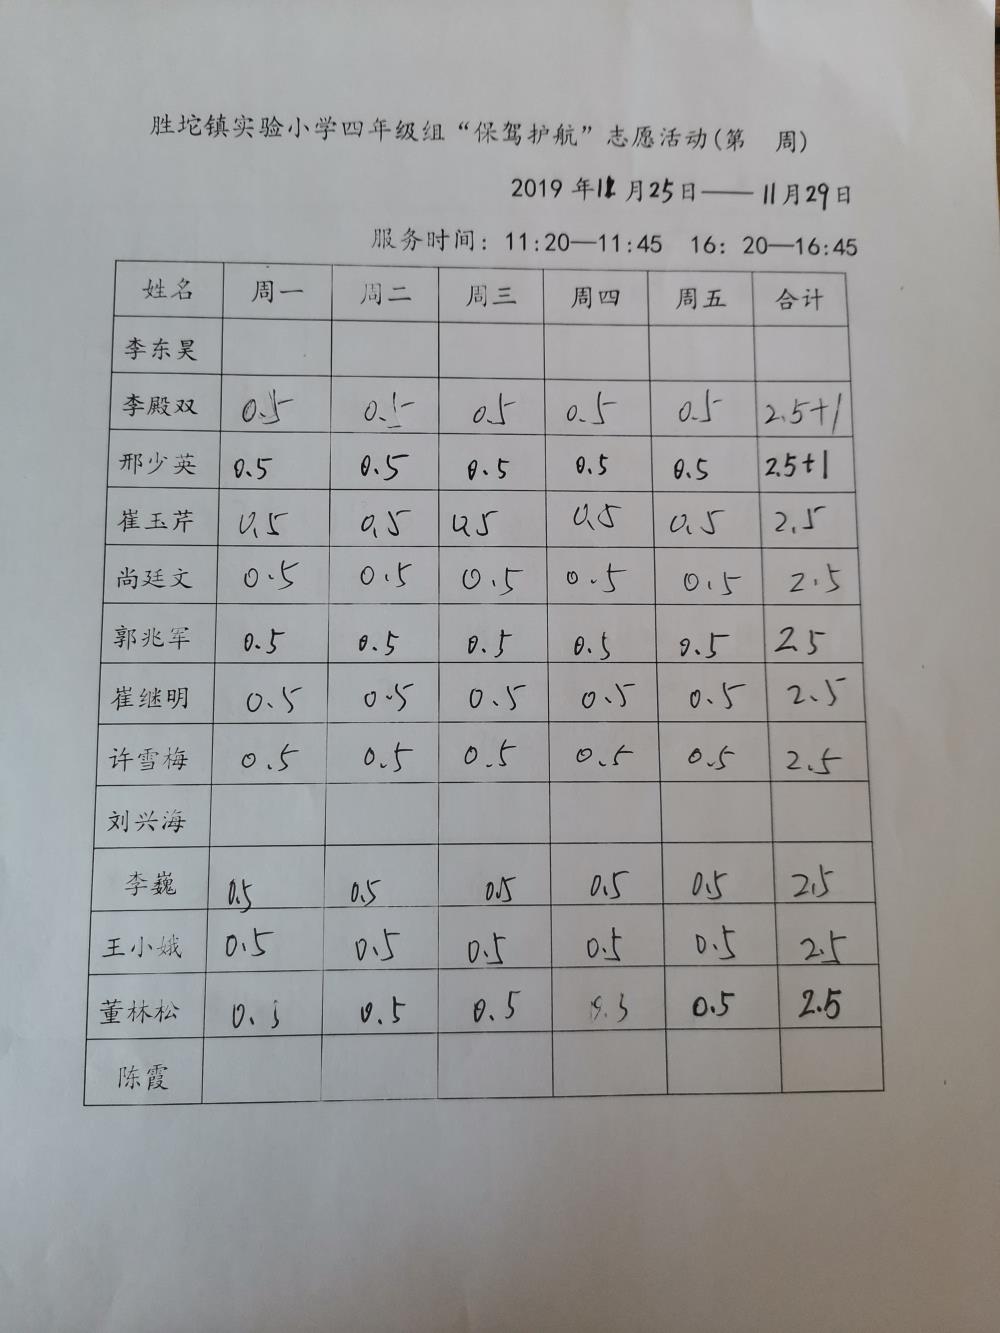 胜坨镇实验小学四年级组“保驾护航”志愿活动(第 周)
2019 年11月25日——11月29日
服务时间: 11:20—11:45 16: 20—16:45
姓名 周一 周二 周三 周四 周五 合计
李东昊
李殿双 0.5 0.5 0.5 0.5 0.5 2.5+1
邢少英 0.5 0.5 0.5 0.5 0.5 2.5+1
崔玉芹 0.5 0.5 0.5 0.5 0.5 2.5
尚廷文 0.5 0.5 0.5 0.5 0.5 2.5
郭兆军 0.5 0.5 0.5 0.5 0.5 2.5
崔继明 0.5 0.5 0.5 0.5 0.5 2.5
许雪梅 0.5 0.5 0.5 0.5 0.5 2.5
刘兴海
李巍 0.5 0.5 0.5 0.5 0.5 2.5
王小娥 0.5 0.5 0.5 0.5 0.5 2.5
董林松 0.5 0.5 0.5 0.5 0.5 2.5
陈霞